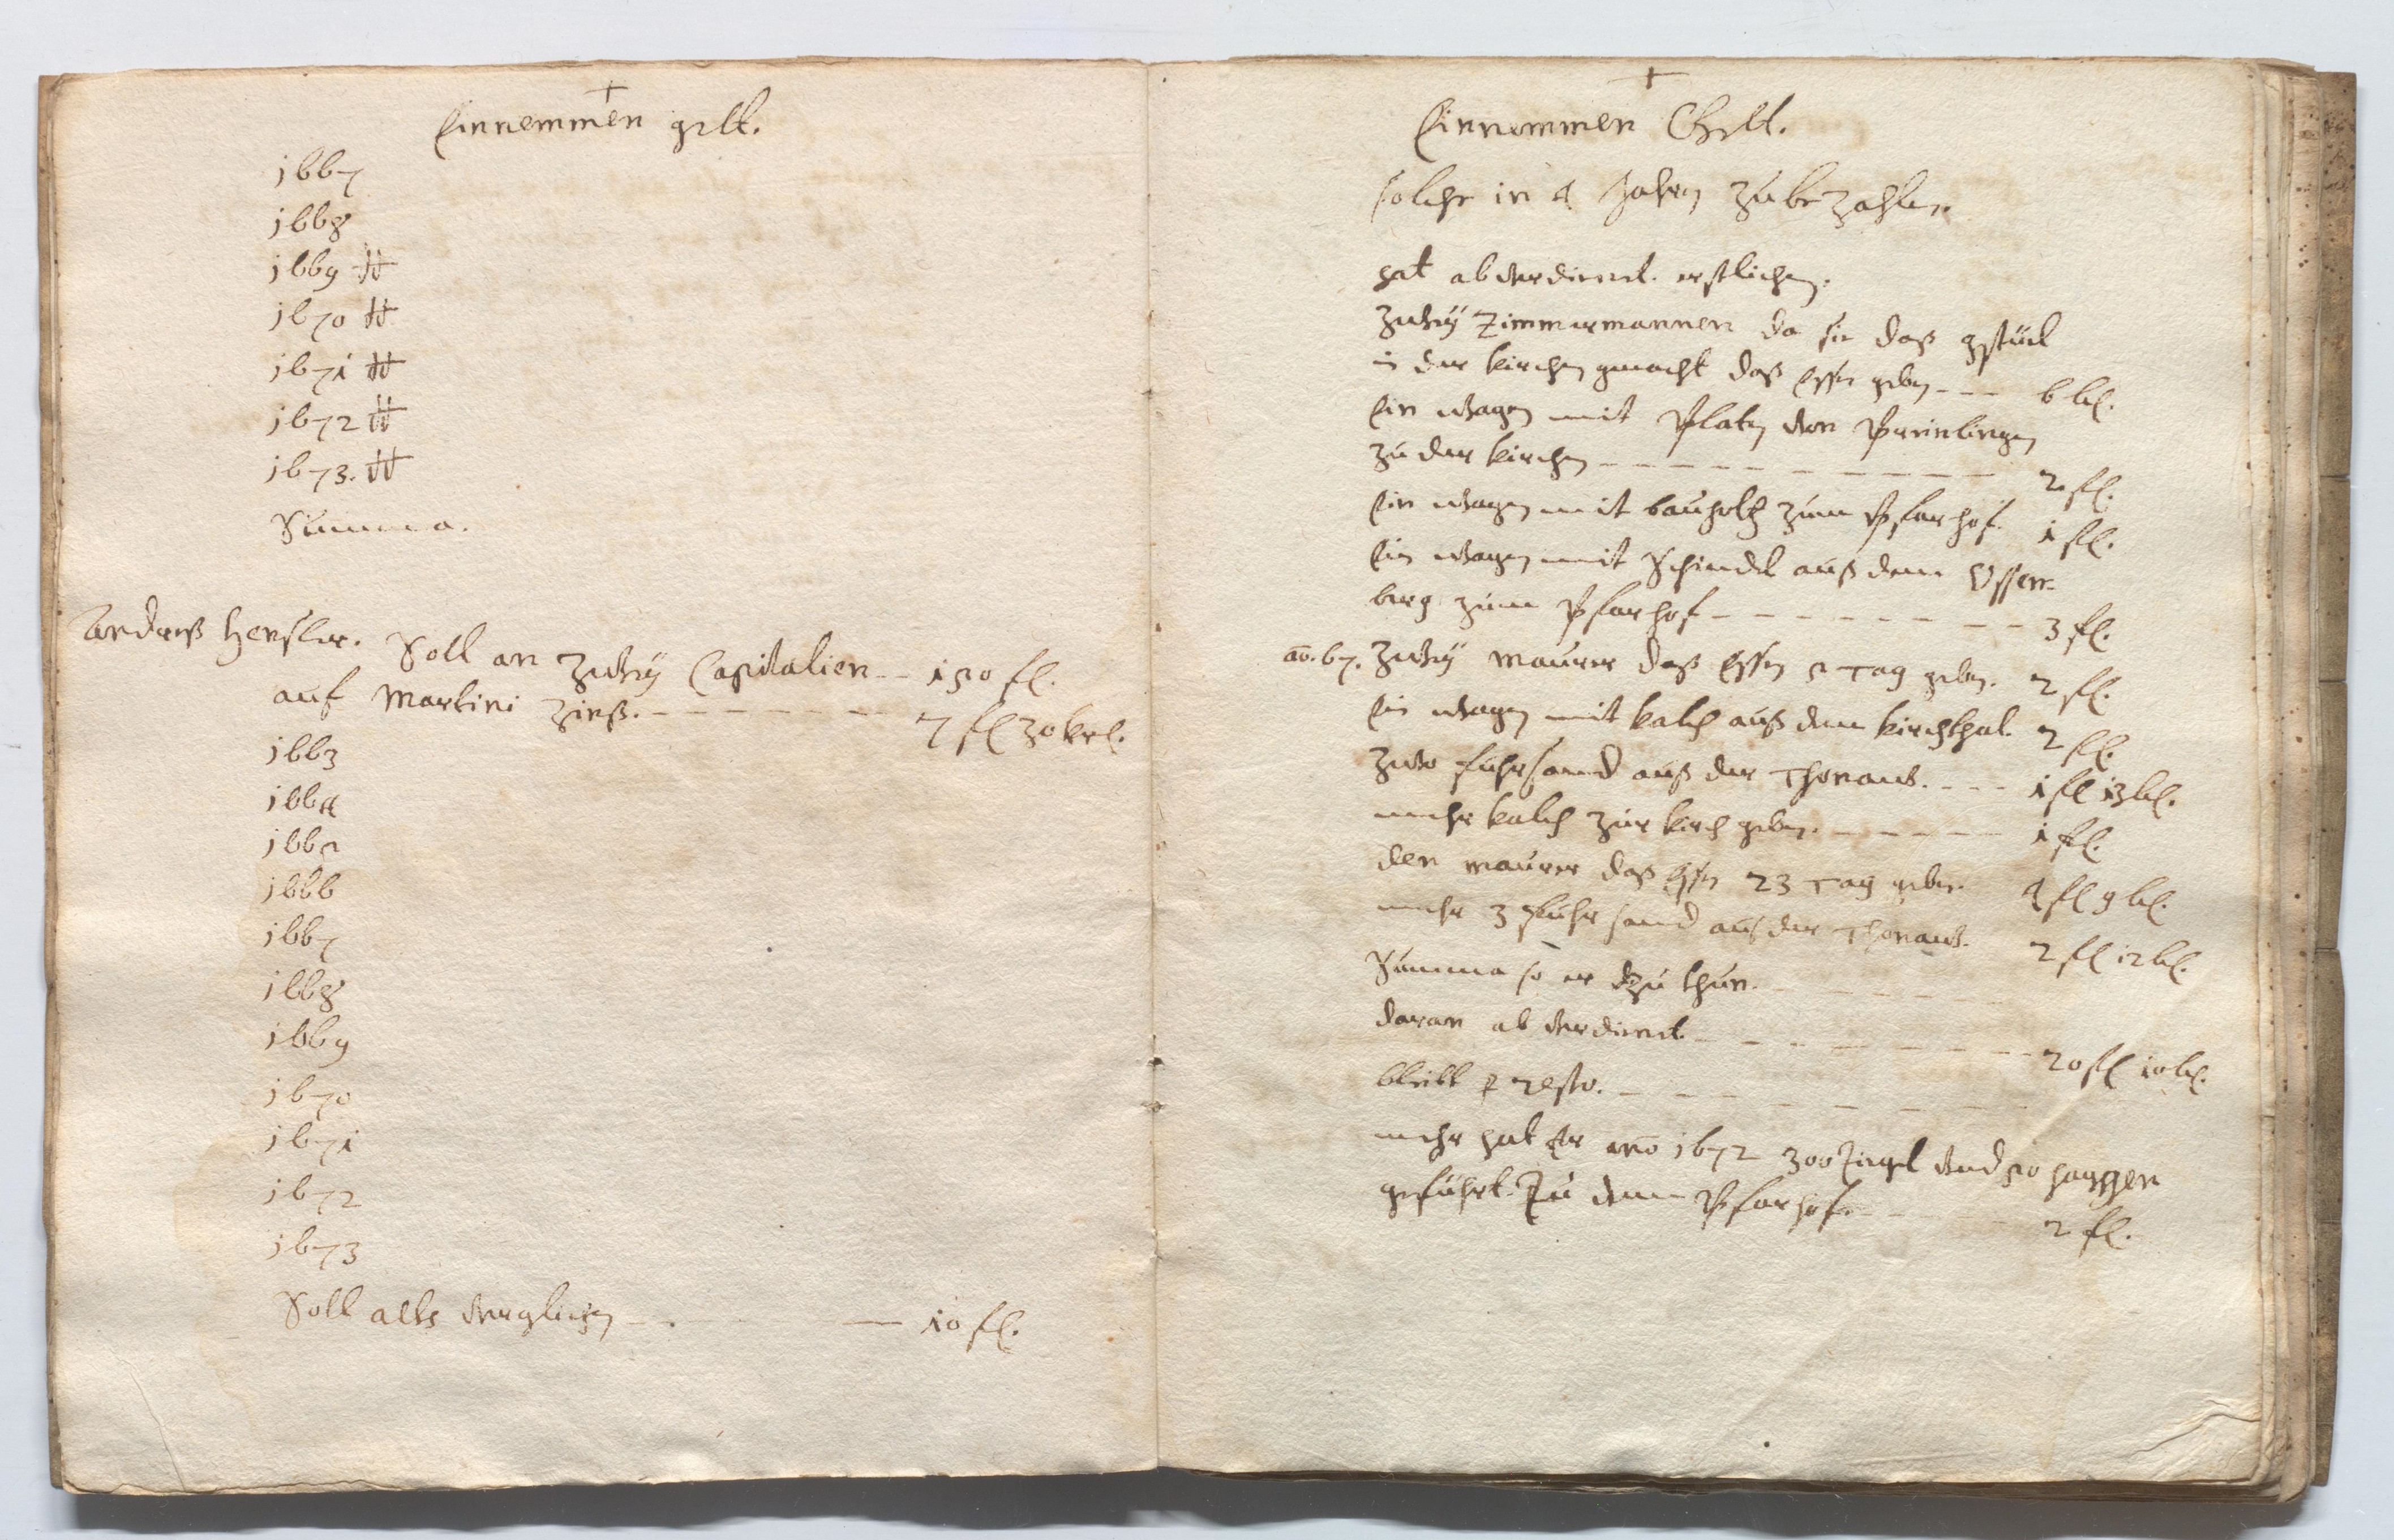 Einnemmen gelt.
1667
1668
1669 #
1670 #
1671 #
1672 #
1673. #
Summa.
Andreß Hensler. Soll an zwey Capitalien -- 150 fl.
auf Martini Zinß. - - - - - - 7 fl 30 krl.
1663
1664
1665
1666
1667
1668
1669
1670
1671
1672
1673
Soll alls verglichen - . — 10 fl.
Einnemmen Gelt.
solche in 4 Jahren zu bezahlen.
hat abverdient. erstlichen.
zwey Zimmermannen da sie daß gstüel
in der Kirchen gemacht daß Essen geben - - - 6 bl.
Ein wagen mit Platen von Preinlingen
zu der Kirchen - - - - - - - - - 2 fl.
Ein wagen mit bauholtz zum Pfarhof. 1 fl.
Ein wagen mit Schindel auß dem Ossen-
berg zum Pfarhof - - - - - - - - 3 fl.
ao. 67. zwey maurer daß Essen 5 Tag geben. 2 fl.
Ein wagen mit kalch auß dem Kirchthal. 2 fl.
zwo fuhr sand auß der Thonaw. - - - - 1 fl 13 bl.
mehr kalch zur Kirch geben. - - - - - - 1 fl.
den maurer daß Essen 23 Tag geben 4 fl 9 bl.
mehr 3 fuhr sand auß der Thonaw. 2 fl 12 bl.
Summa so er dzu thun. - - - - - -
daran ab verdient - - - - - - - - 20 fl 10 bl.
bleibt p resto. - - - - - - - -
mehr hat Er ano 1672 300 Ziegel vnd 50 haggen
geführt. Zu dem Pfarhof. - - - - 2 fl.